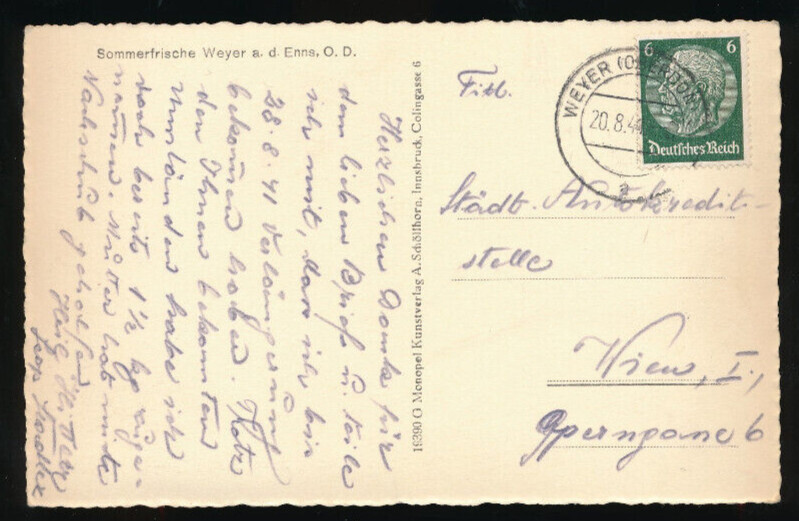 Sommerfrische Weyer a. d. Enns, O. D.
Herzlichen Dank für
den lieben Brief u. teile
ihr mit, dass ich bis
28. 8. 41 Verlängerung
bekommen habe. Trotz
den Ihnen bekannten
Umständen habe ich
doch bereits 1½ kg zuge-
nommen. Mutter hat mit
Nachschub geholfen
Heil Hitler
16390 O Monopol Kunstverlag A. Schöllhorn, Innsbruck, Colingasse 6
WEYER (OBERDON
20.8.4
a
6 6
Deutsches Reich
Städt. Autokredit-
stelle
Wien, I.,
Operngasse 6